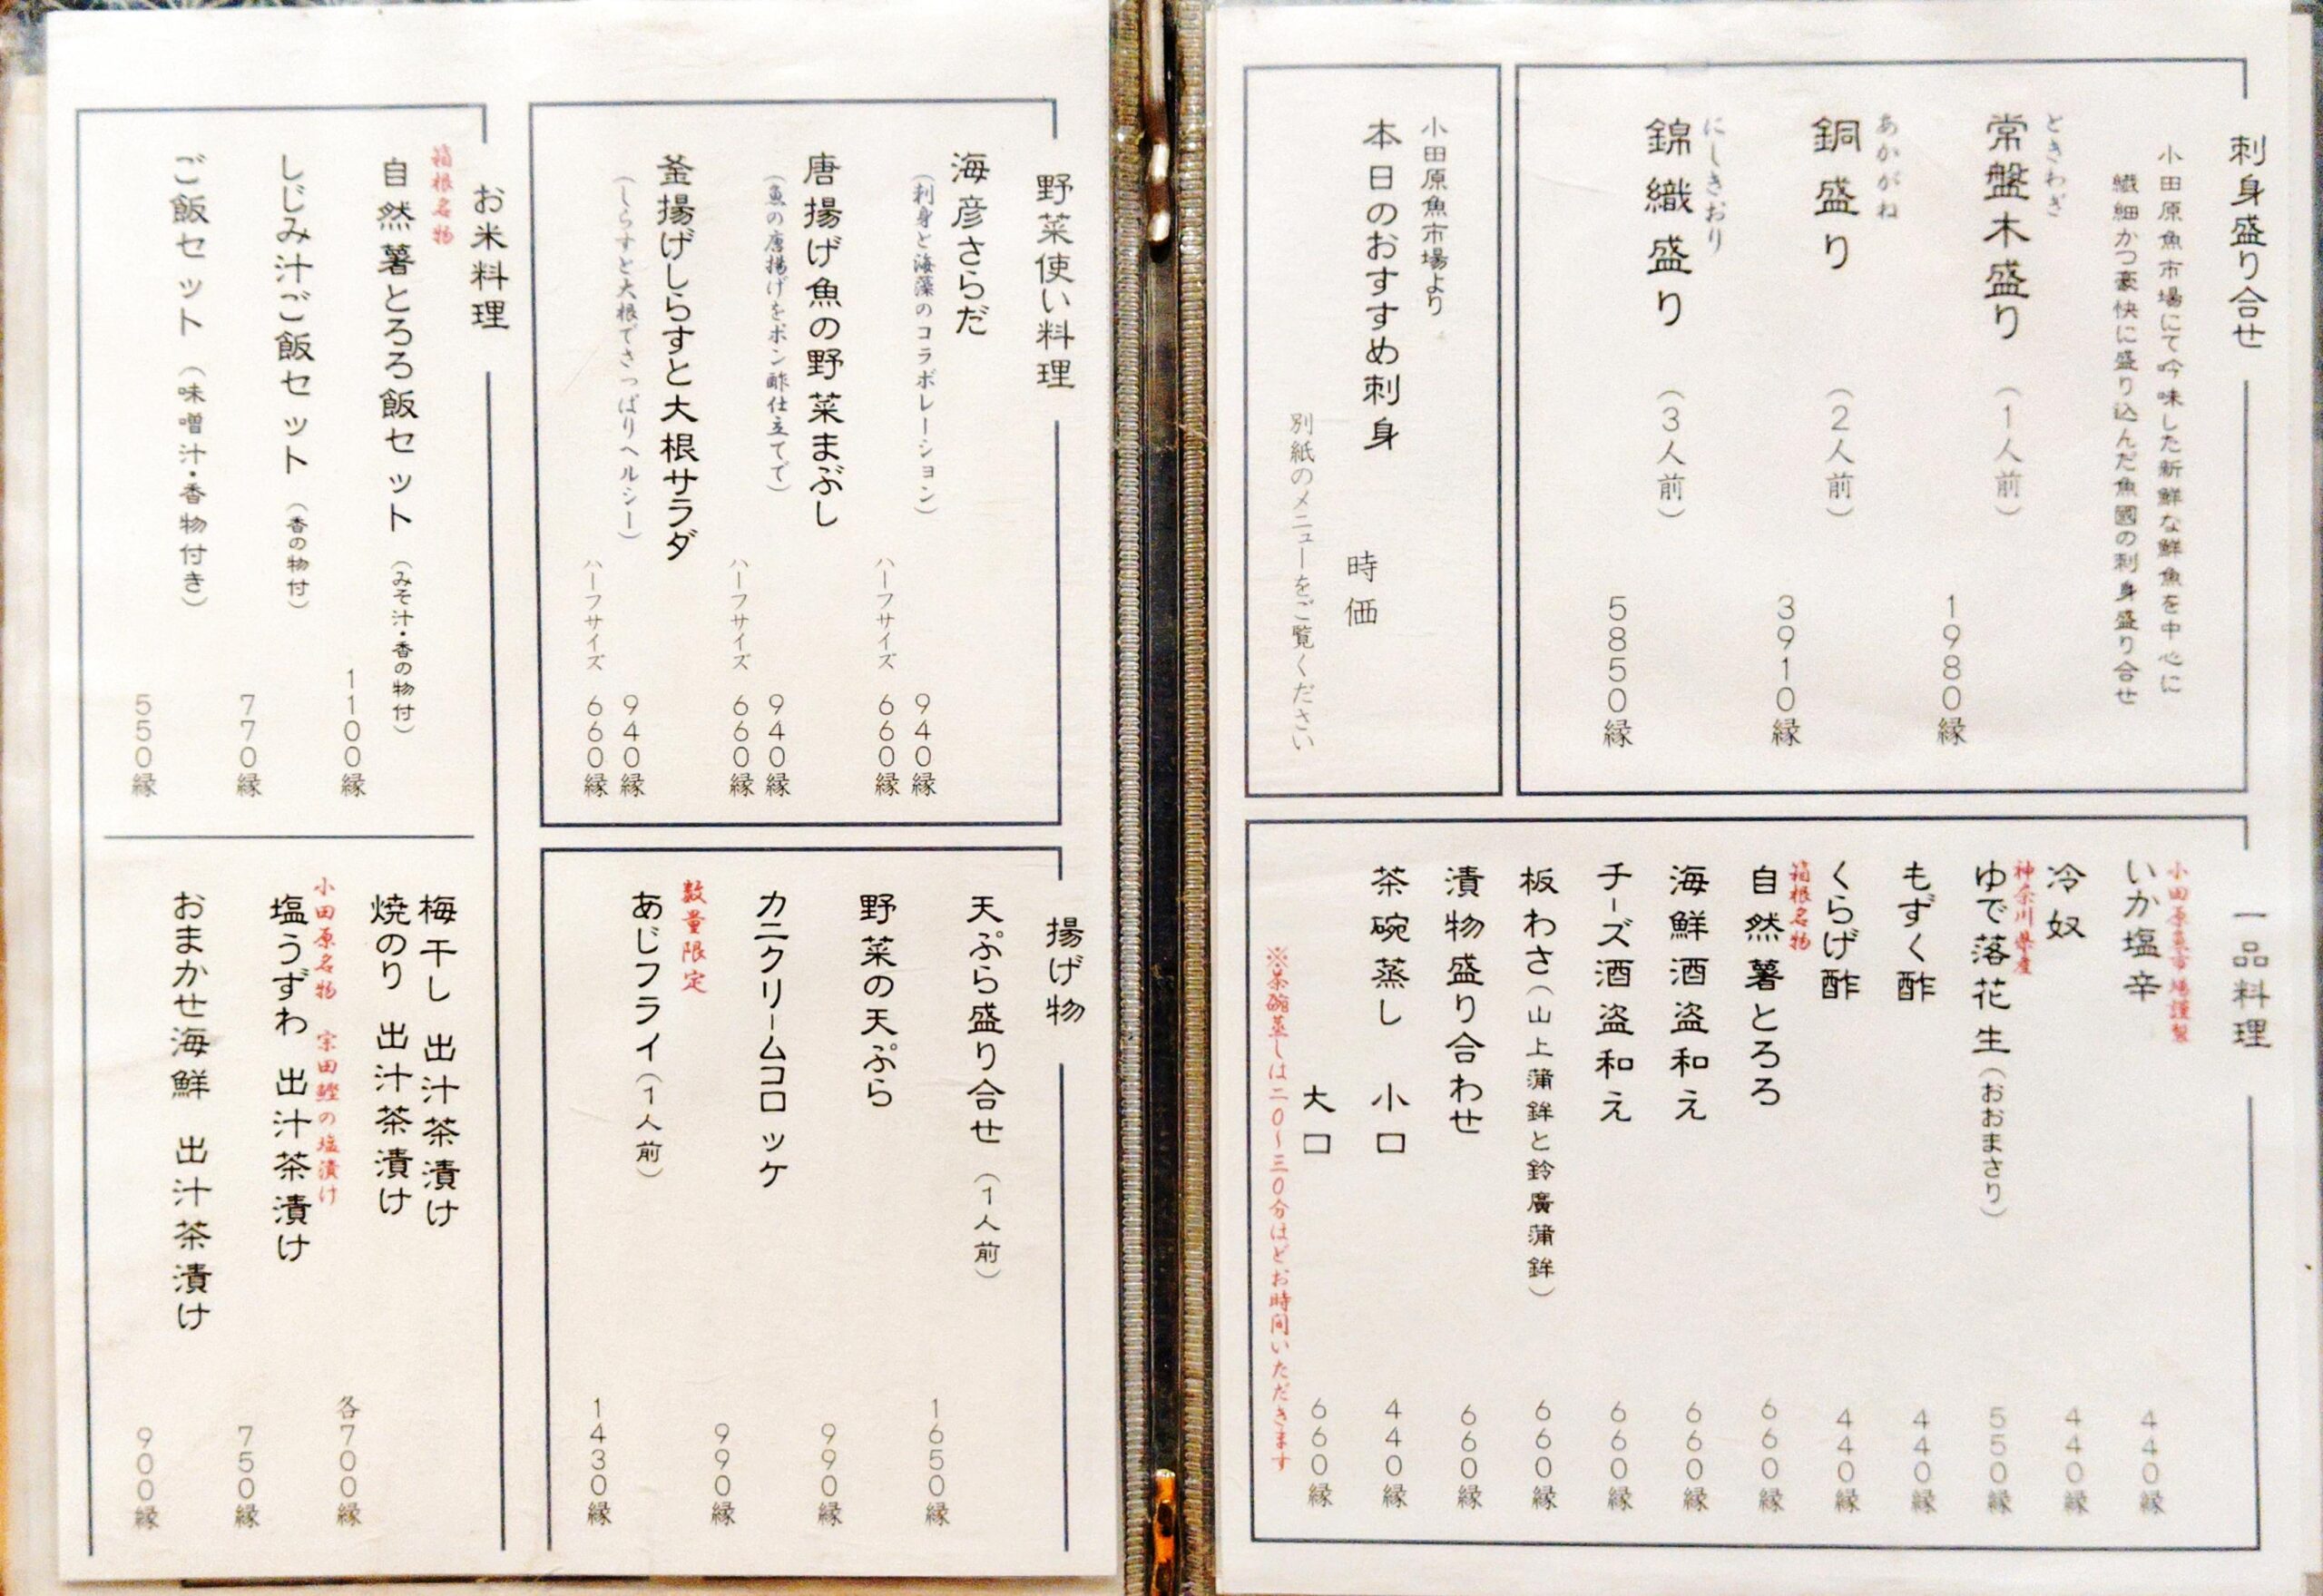 刺身盛り合せ
小田原魚市場にて吟味した新鮮な鮮魚を中心に
繊細かつ豪快に盛り込んだ魚國の刺身盛り合せ
ときわぎ
常盤木盛り (1人前)
1980縁
あかがね
銅盛り (2人前)
3910縁
にしきおり
錦織盛り (3人前)
5850縁
小田原魚市場より
本日のおすすめ刺身
時価
別紙のメニューをご覧ください
一品料理
小田原魚市場謹製
いか塩辛 440縁
冷奴 440縁
神奈川県産
ゆで落花生(おおまさり) 550縁
もずく酢 440縁
くらげ酢 440縁
箱根名物
自然薯とろろ 660縁
海鮮酒盗和え 660縁
チーズ酒盗和え 660縁
板わさ(山上蒲鉾と鈴廣蒲鉾) 660縁
漬物盛り合わせ 660縁
茶碗蒸し 小口 440縁
大口 660縁
※茶碗蒸しは二0〜三0分ほどお時間いただきます
野菜使い料理
海彦さらだ
(刺身と海藻のコラボレーション)
940縁
ハーフサイズ 660縁
唐揚げ魚の野菜まぶし
(魚の唐揚げをポン酢仕立てで)
940縁
ハーフサイズ 660縁
釜揚げしらすと大根サラダ
(しらすと大根でさっぱりヘルシー)
940縁
ハーフサイズ 660縁
揚げ物
天ぷら盛り合せ (1人前)
1650縁
野菜の天ぷら
990縁
カニクリームコロッケ
990縁
数量限定
あじフライ(1人前)
1430縁
お米料理
箱根名物
自然薯とろろ飯セット (みそ汁・香の物付)
1100縁
しじみ汁ご飯セット (香の物付)
770縁
ご飯セット (味噌汁・香物付き)
550縁
梅干し 出汁茶漬け
焼のり 出汁茶漬け
各700縁
小田原名物 宗田鰹の塩漬け
塩うずわ 出汁茶漬け
750縁
おまかせ海鮮 出汁茶漬け
900縁